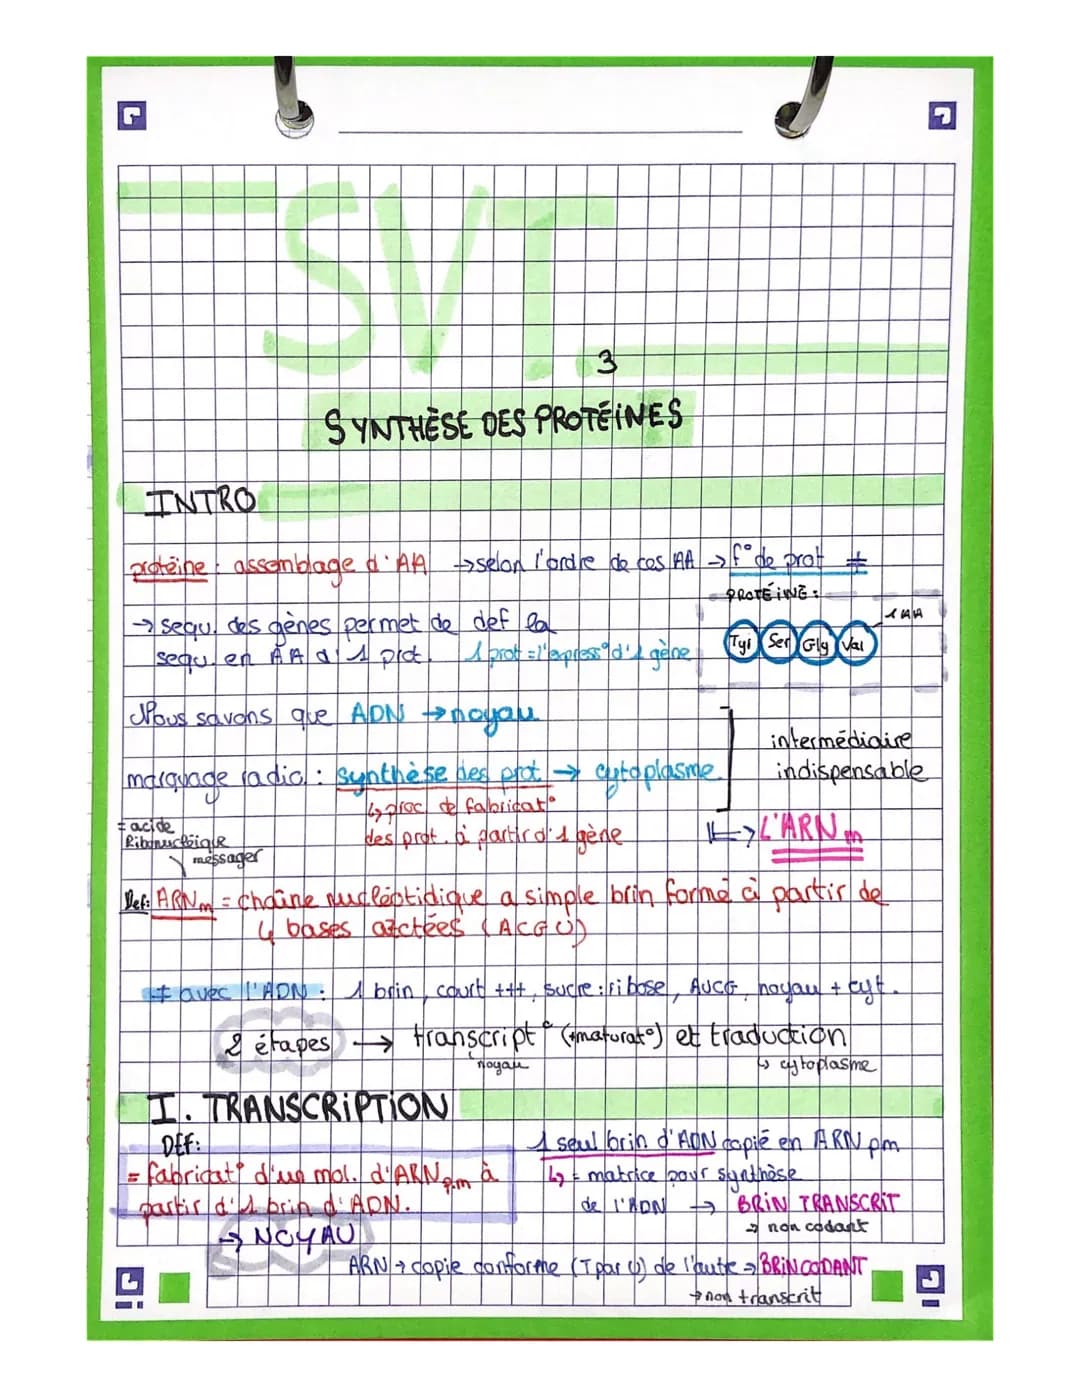 SVT
3
SYNTHÈSE DES PROTÉINES
INTRO
protéine : assemblage d'AA → selon l'ordre de ces AA → f° de prot ≠
PROTÉINE :
1 AA
→ sequ. des gènes permet de def la
sequ. en AA d'1 prot. 1 prot = l'express° d'1 gène
Tyi Ser Gly Val
Nous savons que ADN → noyau
marquage radio. : synthèse des prot → cytoplasme
intermédiaire
indispensable
↳ proc de fabricat°
des prot. à partir d'1 gène
↳ L'ARNm
= acide
Ribonucléique
messager
Def: ARNm = chaîne nucléotidique a simple brin formé à partir de
4 bases azotées (ACGU)
≠ avec l'ADN : 1 brin, court +++, sucre : ribose, AUCG, noyau + cyt.
2 étapes → transcript° (+maturat°) et traduction
noyau
↳ cytoplasme
I. TRANSCRIPTION
DEF:
= fabricat° d'un mol. d'ARN p.m à
partir d'1 brin d'ADN.
→ NOYAU
1 seul brin d'ADN copié en ARN pm
↳ = matrice pour synthèse
de l'ADN → BRIN TRANSCRIT
→ non codant
ARN → copie conforme (T par U) de l'autre → BRIN CODANT
→ non transcrit